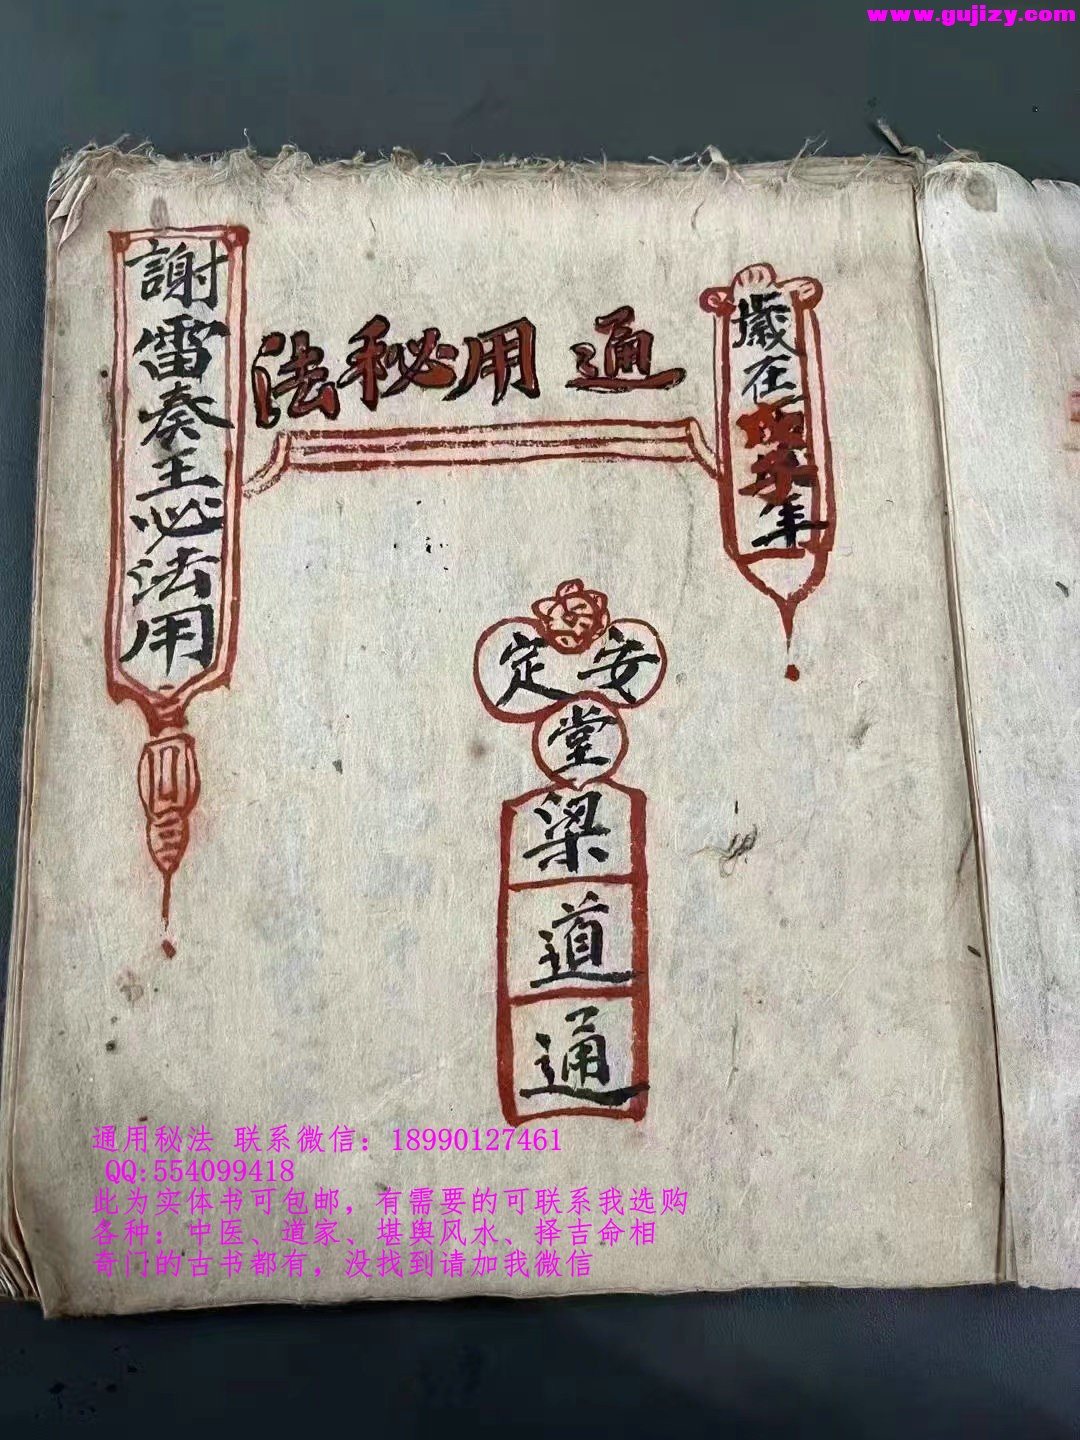 www.gujizy.com
歲在
年
通用秘法
謝雷奏王必法用
安定
堂
梁
道
通
通用秘法 联系微信：18990127461
QQ:554099418
此为实体书可包邮，有需要的可联系我选购
各种：中医、道家、堪舆风水、择吉命相
奇门的古书都有，没找到请加我微信